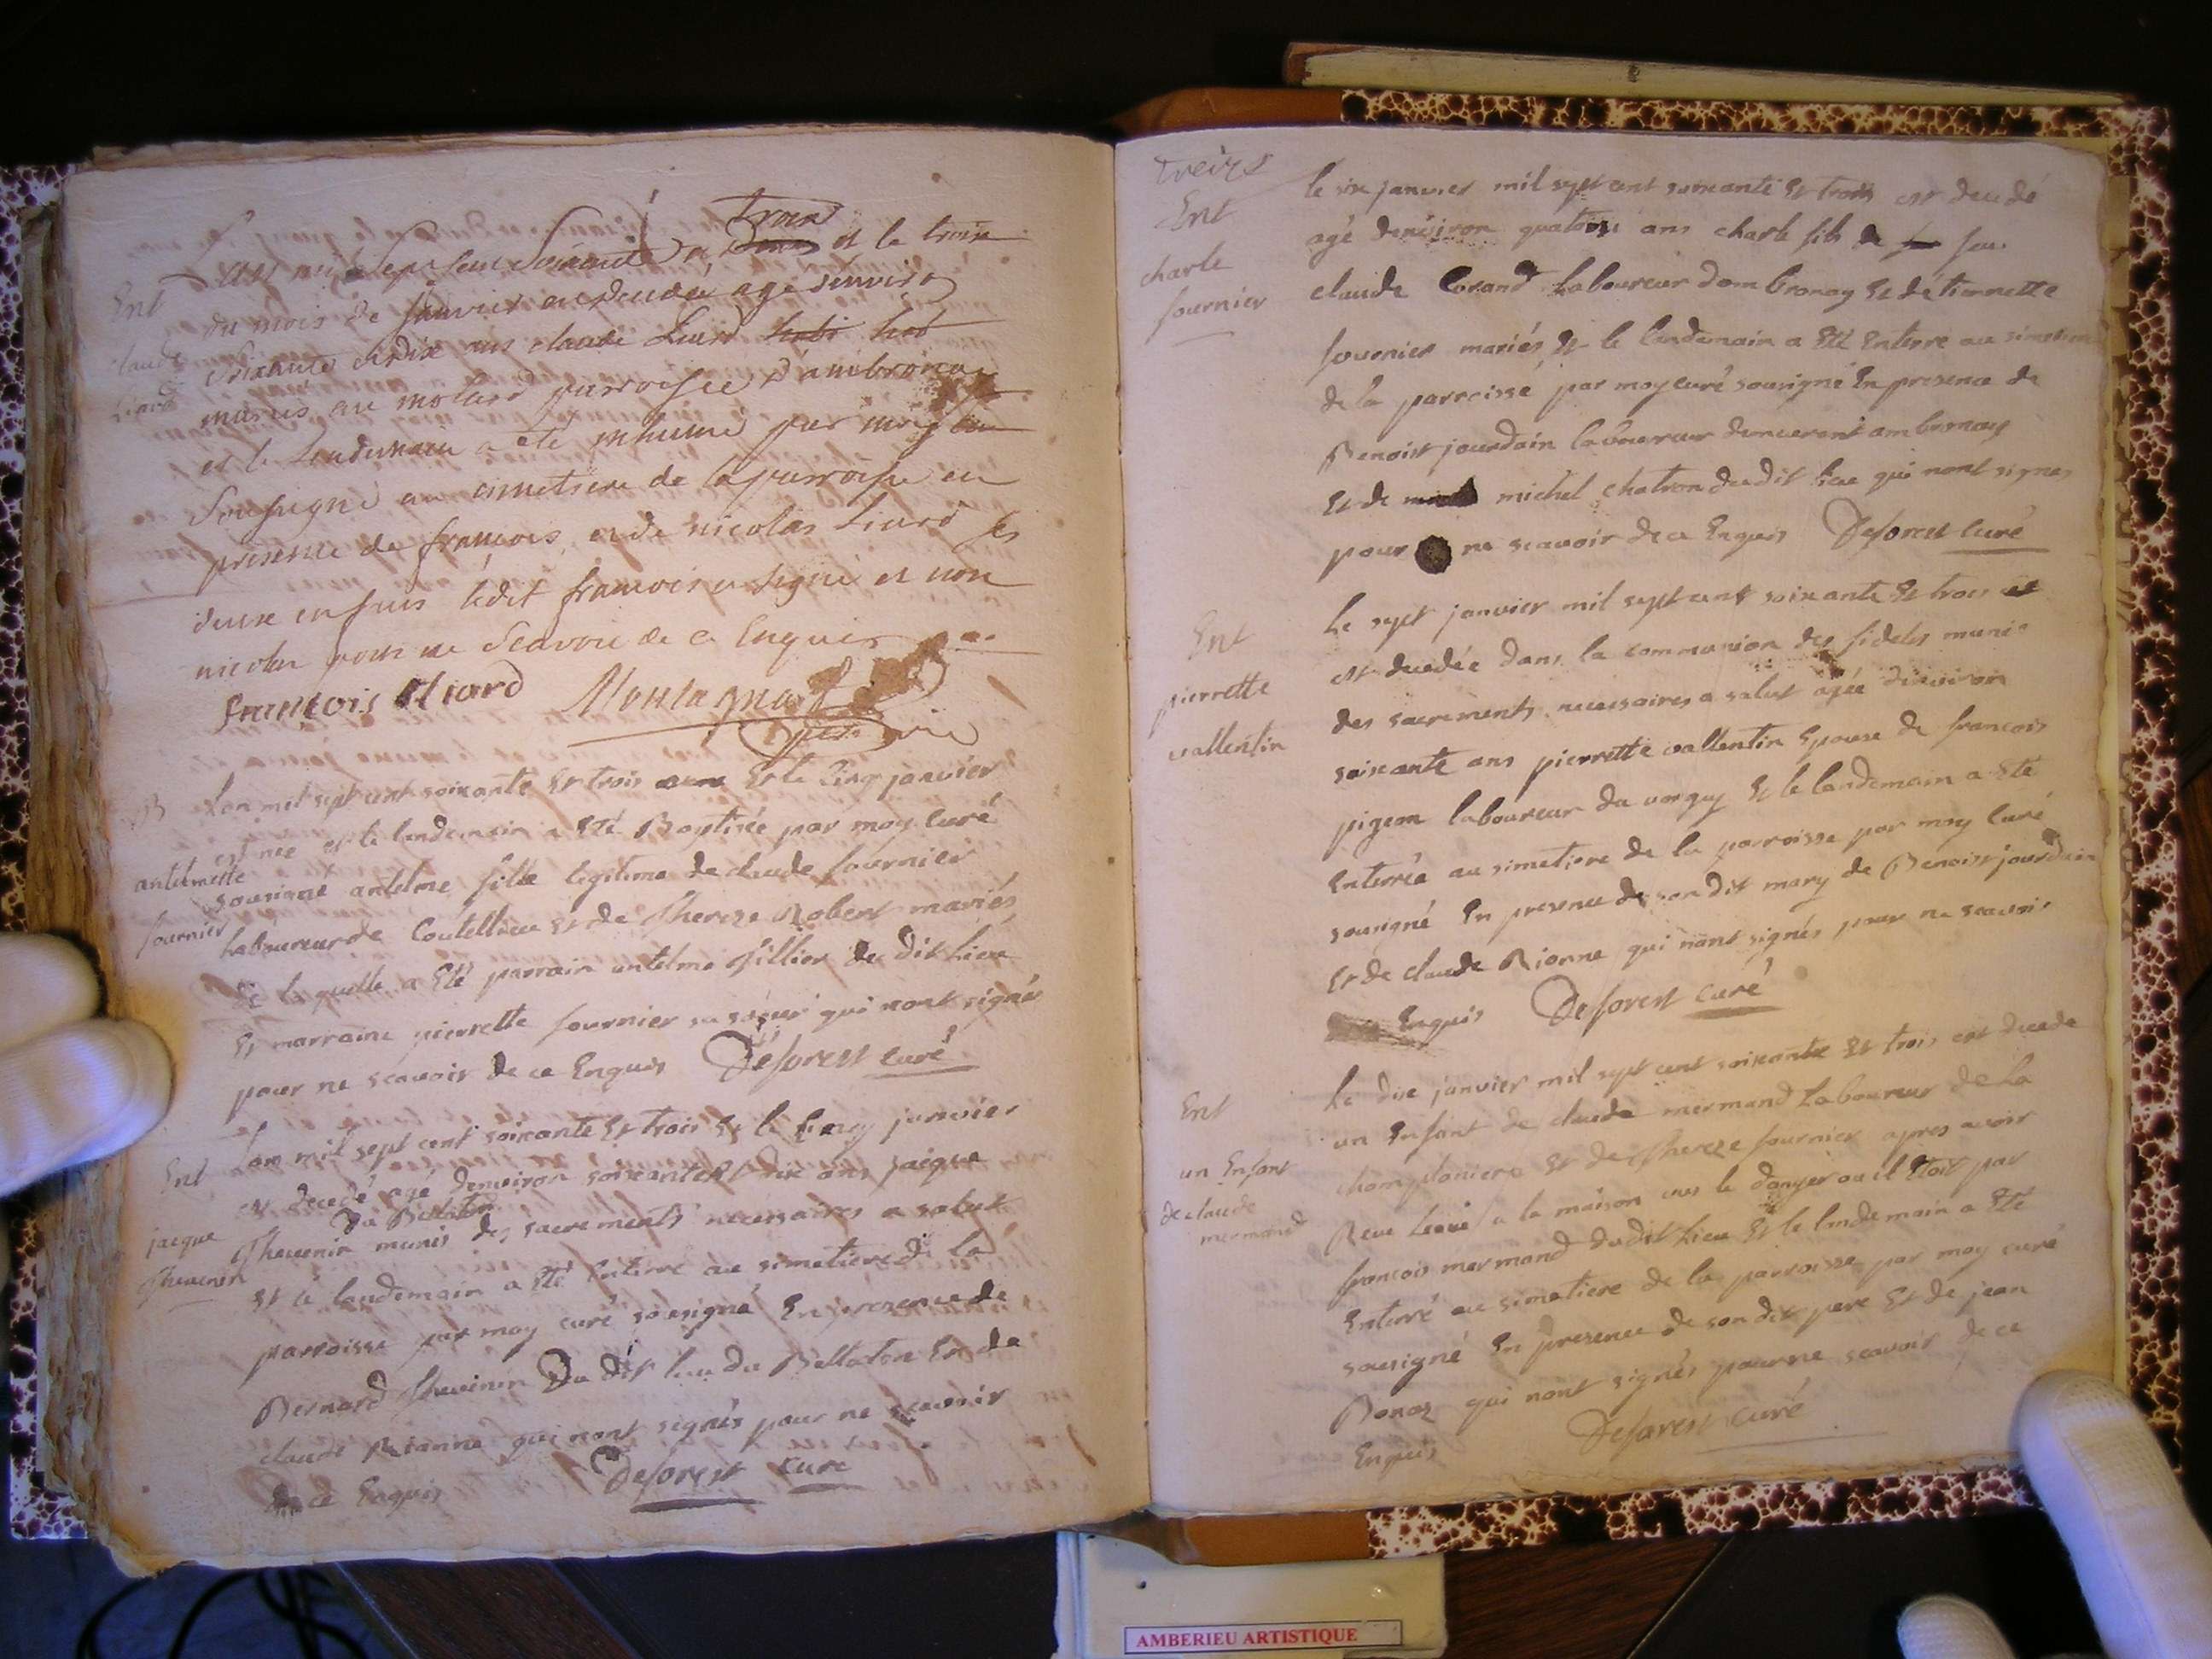 L'an mil sept cent soixante et trois et le troise
du mois de janvier est decedé agé denviron
Ent
claude
Liard
soixante et dix ans claude Liard
mariés au molard parroisse d'ambronay
et le lendemain a été inhumé par moy
soussigné au cimetiere de la parroisse en
presence de francois et de nicolas Liard ses
deux enfans ledit francois a signé et non
nicolas pour ne scavoir de ce Enquis
francois Liard
B
antelmette
fournier
Lan mil sept cent soixante Et trois Et le Cinq janvier
est nee et le lendemain a Eté Baptisée par moy Curé
sousigné antelme fille legitime de claude fournier
laboureur de Coutellieu Et de Thereze Robert mariés
De laquelle a Eté parrain antelme Tillier du dit Lieu
Et marraine pierrette fournier sa soeur qui nont signés
pour ne scavoir de ce Enquis Deforest curé
Ent
jacque
Thevenin
Lan mil sept cent soixante Et trois Et le Cinq janvier
est decedé agé denviron soixante Et dix ans jacque
Du Bellaton
Thevenin munis des sacrements necessaires a salut
Et le landemain a Eté Enterré au simetiere de La
parroisse par moy curé sousigné En presence de
Bernard Thevenin Du dit lieu du Bellaton Et de
claude Rionne qui nont signés pour ne scavoir
de ce Enquis Deforest curé
treize
Ent
charle
fournier
le six janvier mil sept cent soixante Et trois est decedé
agé denviron quatorze ans charle fils de feu
claude Corand Laboureur dambronay Et détiennette
fournier mariés Et le landemain a Eté Enterré au simetiere
de la parroisse par moy curé sousigné En presence de
Benoist jourdain laboureur ambronay
Et de michel chatron dudit lieu qui nont signés
pour ne scavoir de ce Enquis Deforest curé
Ent
pierrette
vallentin
Le sept janvier mil sept cent soixante Et trois
est decedée dans la communion des fideles munie
des sacrements necessaires a salut agée denviron
soixante ans pierrette vallentin Epouse de francois
pigeon laboureur du vorguy Et le landemain a Eté
Enterrée au simetiere de la parroisse par moy Curé
sousigné En presence de son dit mary de Benoist jourdain
Et de claude Rionne qui nont signés pour ne scavoir
Enquis Deforest curé
Ent
un Enfant
de claude
mermand
Le dix janvier mil sept cent soixante Et trois est decedé
un Enfant de claude mermand Laboureur de La
champloniere Et de Thereze fournier apres avoir
Reçu Leau a la maison vus le danger ou il Etoit par
francois mermand dudit Lieu Et le landemain a Eté
Enterré au simetiere de la parroisse par moy curé
sousigné En presence de son dit pere Et de jean
Bonaz qui nont signés pour ne scavoir de ce
Enquis Deforest curé
AMBERIEU ARTISTIQUE